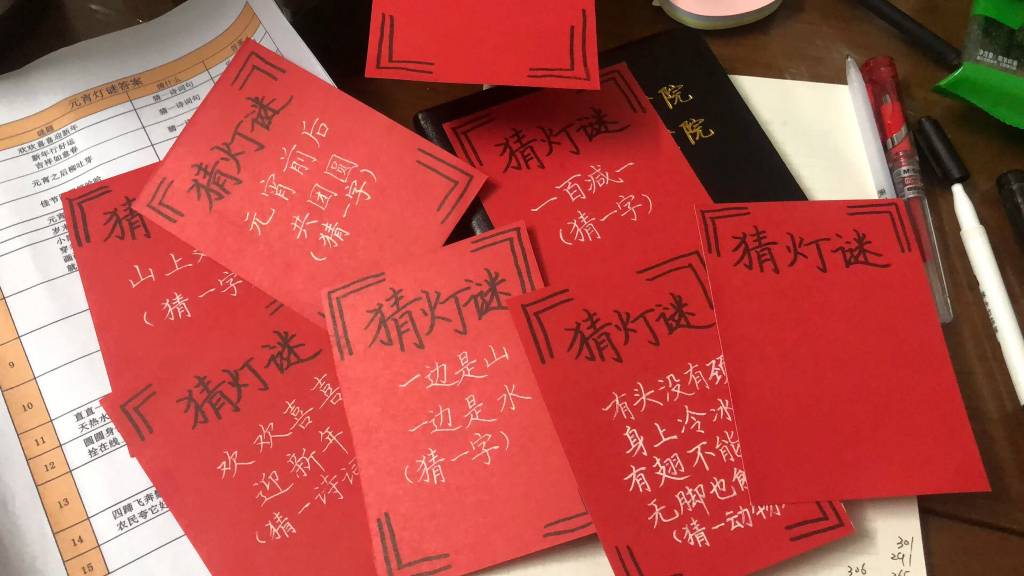 元宵灯谜答案
谜题
猜什么
答案
欢欢喜喜迎新年
猜一诗词句
新年行好运
吉祥如意春
元宵之后柳吐芽
佳节
9
10
11
12
13
14
15
直直
天热水
圆圆身
拴在线
四蹄飞奔
农民夸它好
猜灯谜
元宵前后
共团圆
(猜一字)
猜
山上
(猜一字
猜灯谜
欢欢喜喜
迎新年
(猜一诗词
猜灯谜
一边是山
一边是水
(猜一字)
猜灯谜
一百减一
(猜一字)
猜灯谜
有头没有颈
身上冷冰
有翅不能
无脚也
(猜一动物
猜灯谜
院
院
301
291
306